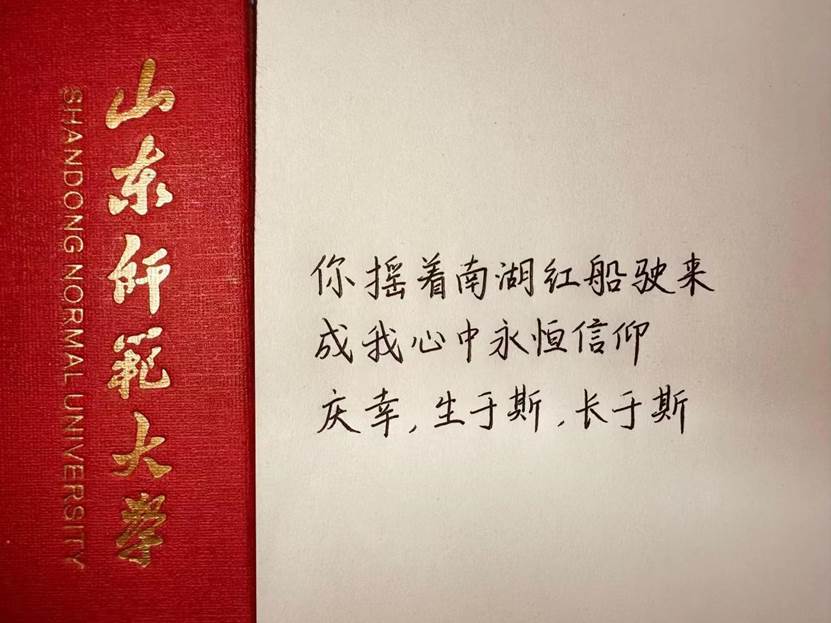 山东师范大学
SHANDONG NORMAL UNIVERSITY
你摇着南湖红船驶来
成我心中永恒信仰
庆幸,生于斯,长于斯